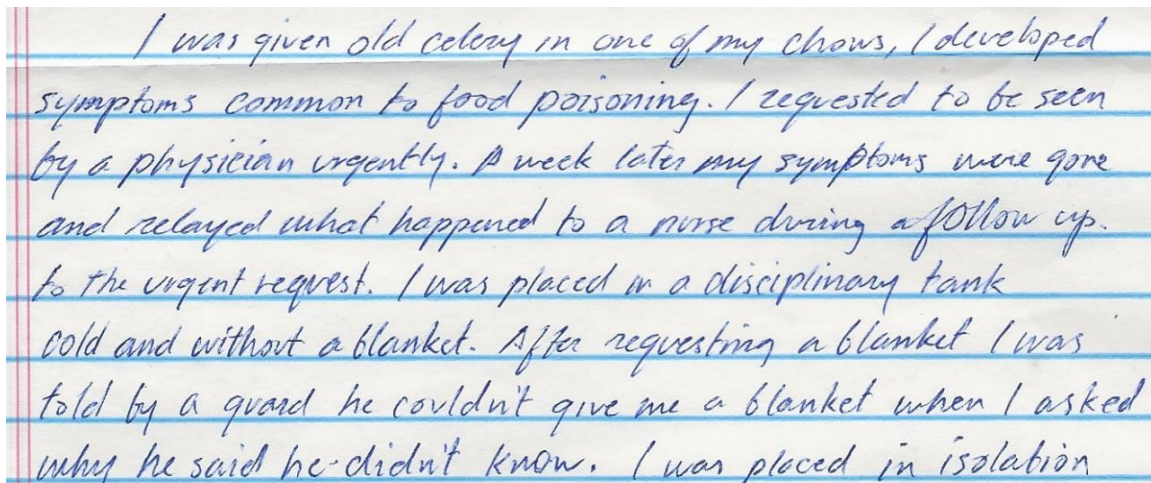 I was given old celery in one of my chows, I developed
symptoms common to food poisoning. I requested to be seen
by a physician urgently. A week later my symptoms were gone
and relayed what happened to a nurse during a follow up.
to the urgent request. I was placed in a disciplinary tank
cold and without a blanket. After requesting a blanket I was
told by a guard he couldn't give me a blanket when I asked
why he said he didn't know. I was placed in isolation